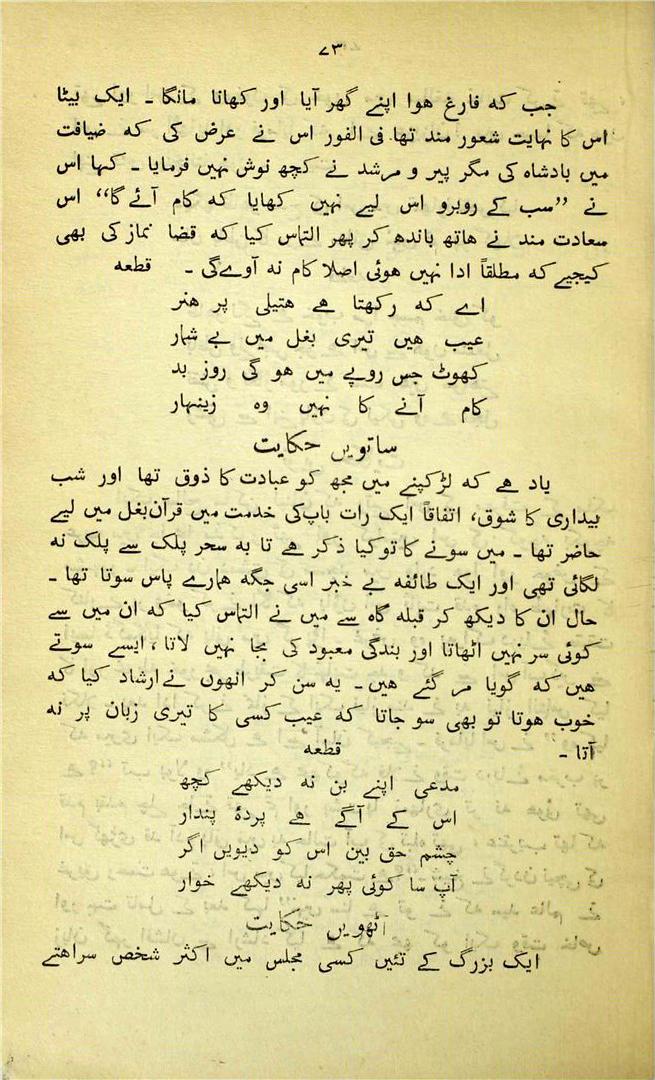 ۷۳
جب که فارغ هوا اپنے گھر آیا اور کھانا مانگا ـ ایک بیٹا
اس کا نہایت شعور مند تھا فی الفور اس نے عرض کی که ضیافت
میں بادشاه کی مگر پیر و مرشد نے کچھ نوش نہیں فرمایا ـ کہا اس
نے ”سب کے روبرو اس لیے نہیں کھایا که کام آئے گا“ اس
سعادت مند نے هاتھ باندھ کر پھر التماس کیا که قضا نماز کی بھی
کیجیے که مطلقاً ادا نہیں هوئی اصلا کام نه آوے گی ـ قطعه
اے که رکھتا هے هتیلی پر هنر
عیب هیں تیری بغل میں بے شمار
کھوٹ جس روپے میں هو گی روز بد
کام آنے کا نہیں وه زینہار
ساتویں حکایت
یاد هے که لڑکپنے میں مجھ کو عبادت کا ذوق تھا اور شب
بیداری کا شوق، اتفاقاً ایک رات باپ کی خدمت میں قرآن بغل میں لیے
حاضر تھا ـ میں سونے کا تو کیا ذکر هے تا به سحر پلک سے پلک نه
لگائی تھی اور ایک طائفه بے خبر اسی جگه همارے پاس سوتا تھا ـ
حال ان کا دیکھ کر قبله گاه سے میں نے التماس کیا که ان میں سے
کوئی سر نہیں اٹھاتا اور بندگی معبود کی بجا نہیں لاتا، ایسے سوتے
هیں که گویا مر گئے هیں ـ یه سن کر انھوں نے ارشاد کیا که
خوب هوتا تو بھی سو جاتا که عیب کسی کا تیری زبان پر نه
آتا ـ قطعه
مدعی اپنے بن نه دیکھے کچھ
اس کے آگے هے پردۂ پندار
چشم حق بین اس کو دیویں اگر
آپ سا کوئی پھر نه دیکھے خوار
آٹھویں حکایت
ایک بزرگ کے تئیں کسی مجلس میں اکثر شخص سراهتے